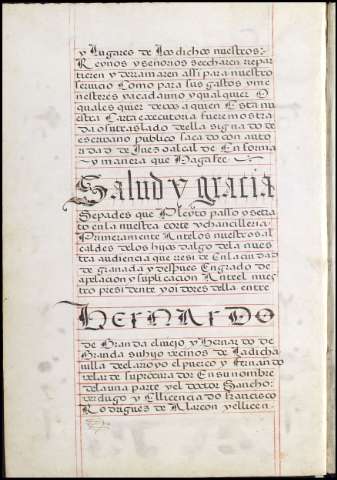 y lugares de los dichos nuestros
Reynos y señorios se echaren repar
tieren y derramaren assi para nuestro
seruicio como para sus gastos y me
nesteres y a cada vno y qualquier o
quales quier de vos a quien esta nu
estra carta executoria fuere mostra
da o su traslado della signado de
escriuano publico sacado con auto
ridad de Juez o alcalde en forma
y manera que haga fee
Salud y gracia
Sepades que Pleyto passo y se trato
en la nuestra corte y chancilleria
Primeramente Ante los nuestros al
caldes de los hijos dalgo de la nues
tra audiencia que resi de En la ciudad
de granada y despues En grado de
apelacion y suplicacion Ante el nues
tro presidente y oidores della entre
HERNANDO
de Granda el viejo y Hernando de
Granda su hijo vecinos de La dicha
villa del arroyo el puerco y Hernando
velar de su procurador En su nombre
de la vna parte y el doctor Sancho
verdugo y El licenciado francisco
Rodrigues de Alarcon y el licen